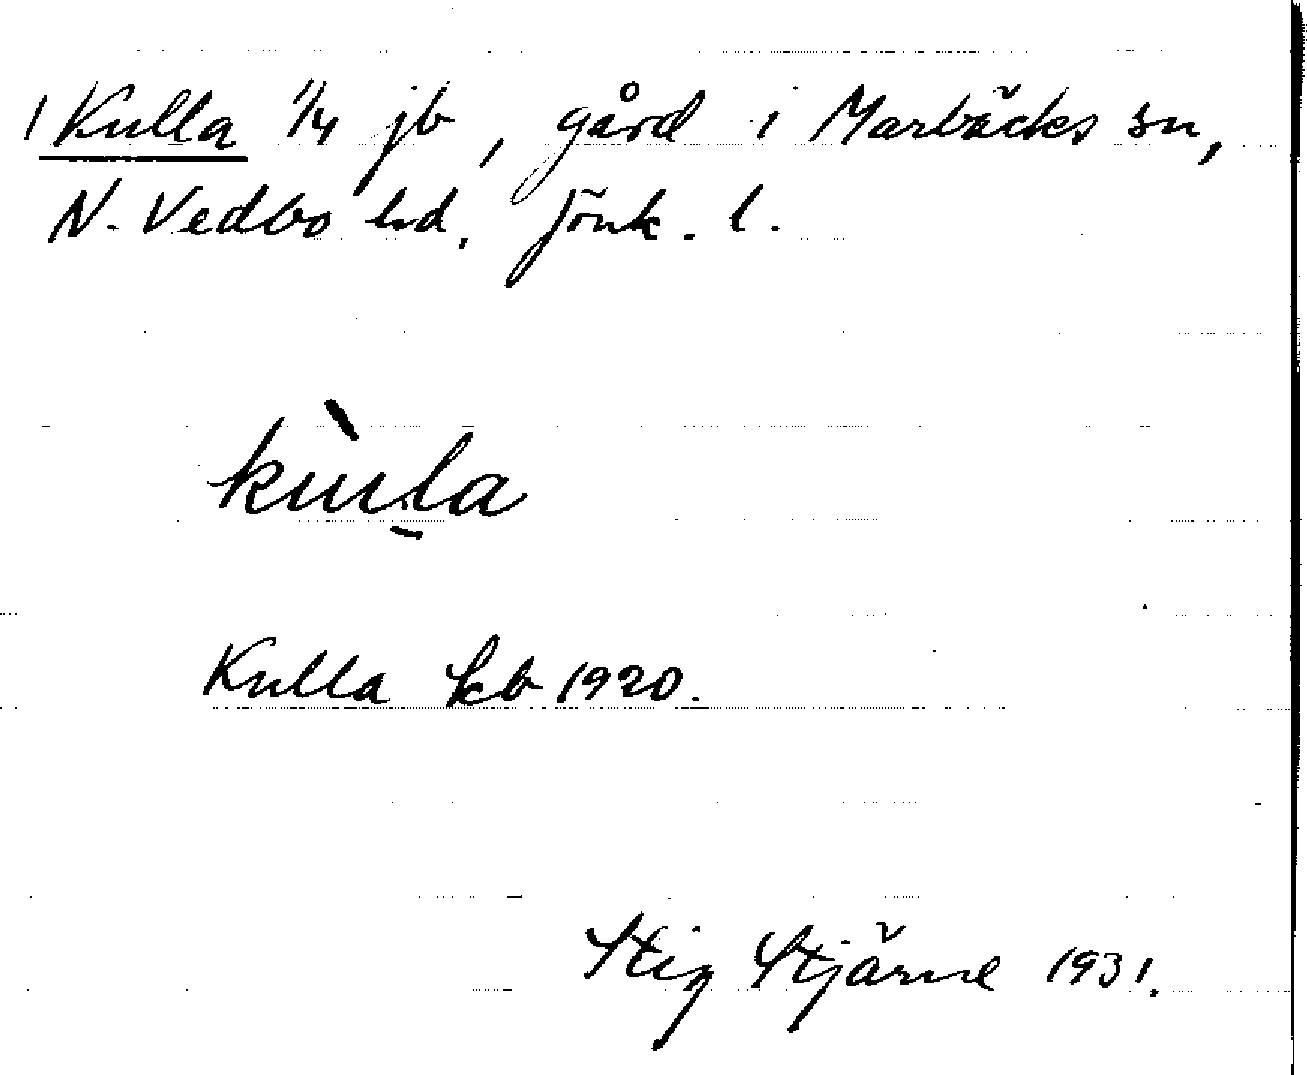 1 Kulla 1/4 jb, gård i Marbäcks sn,
N. Vedbo hd. Jönk. l.
kùl̠a
Kulla kb 1920.
Stig Stjärne 1931.